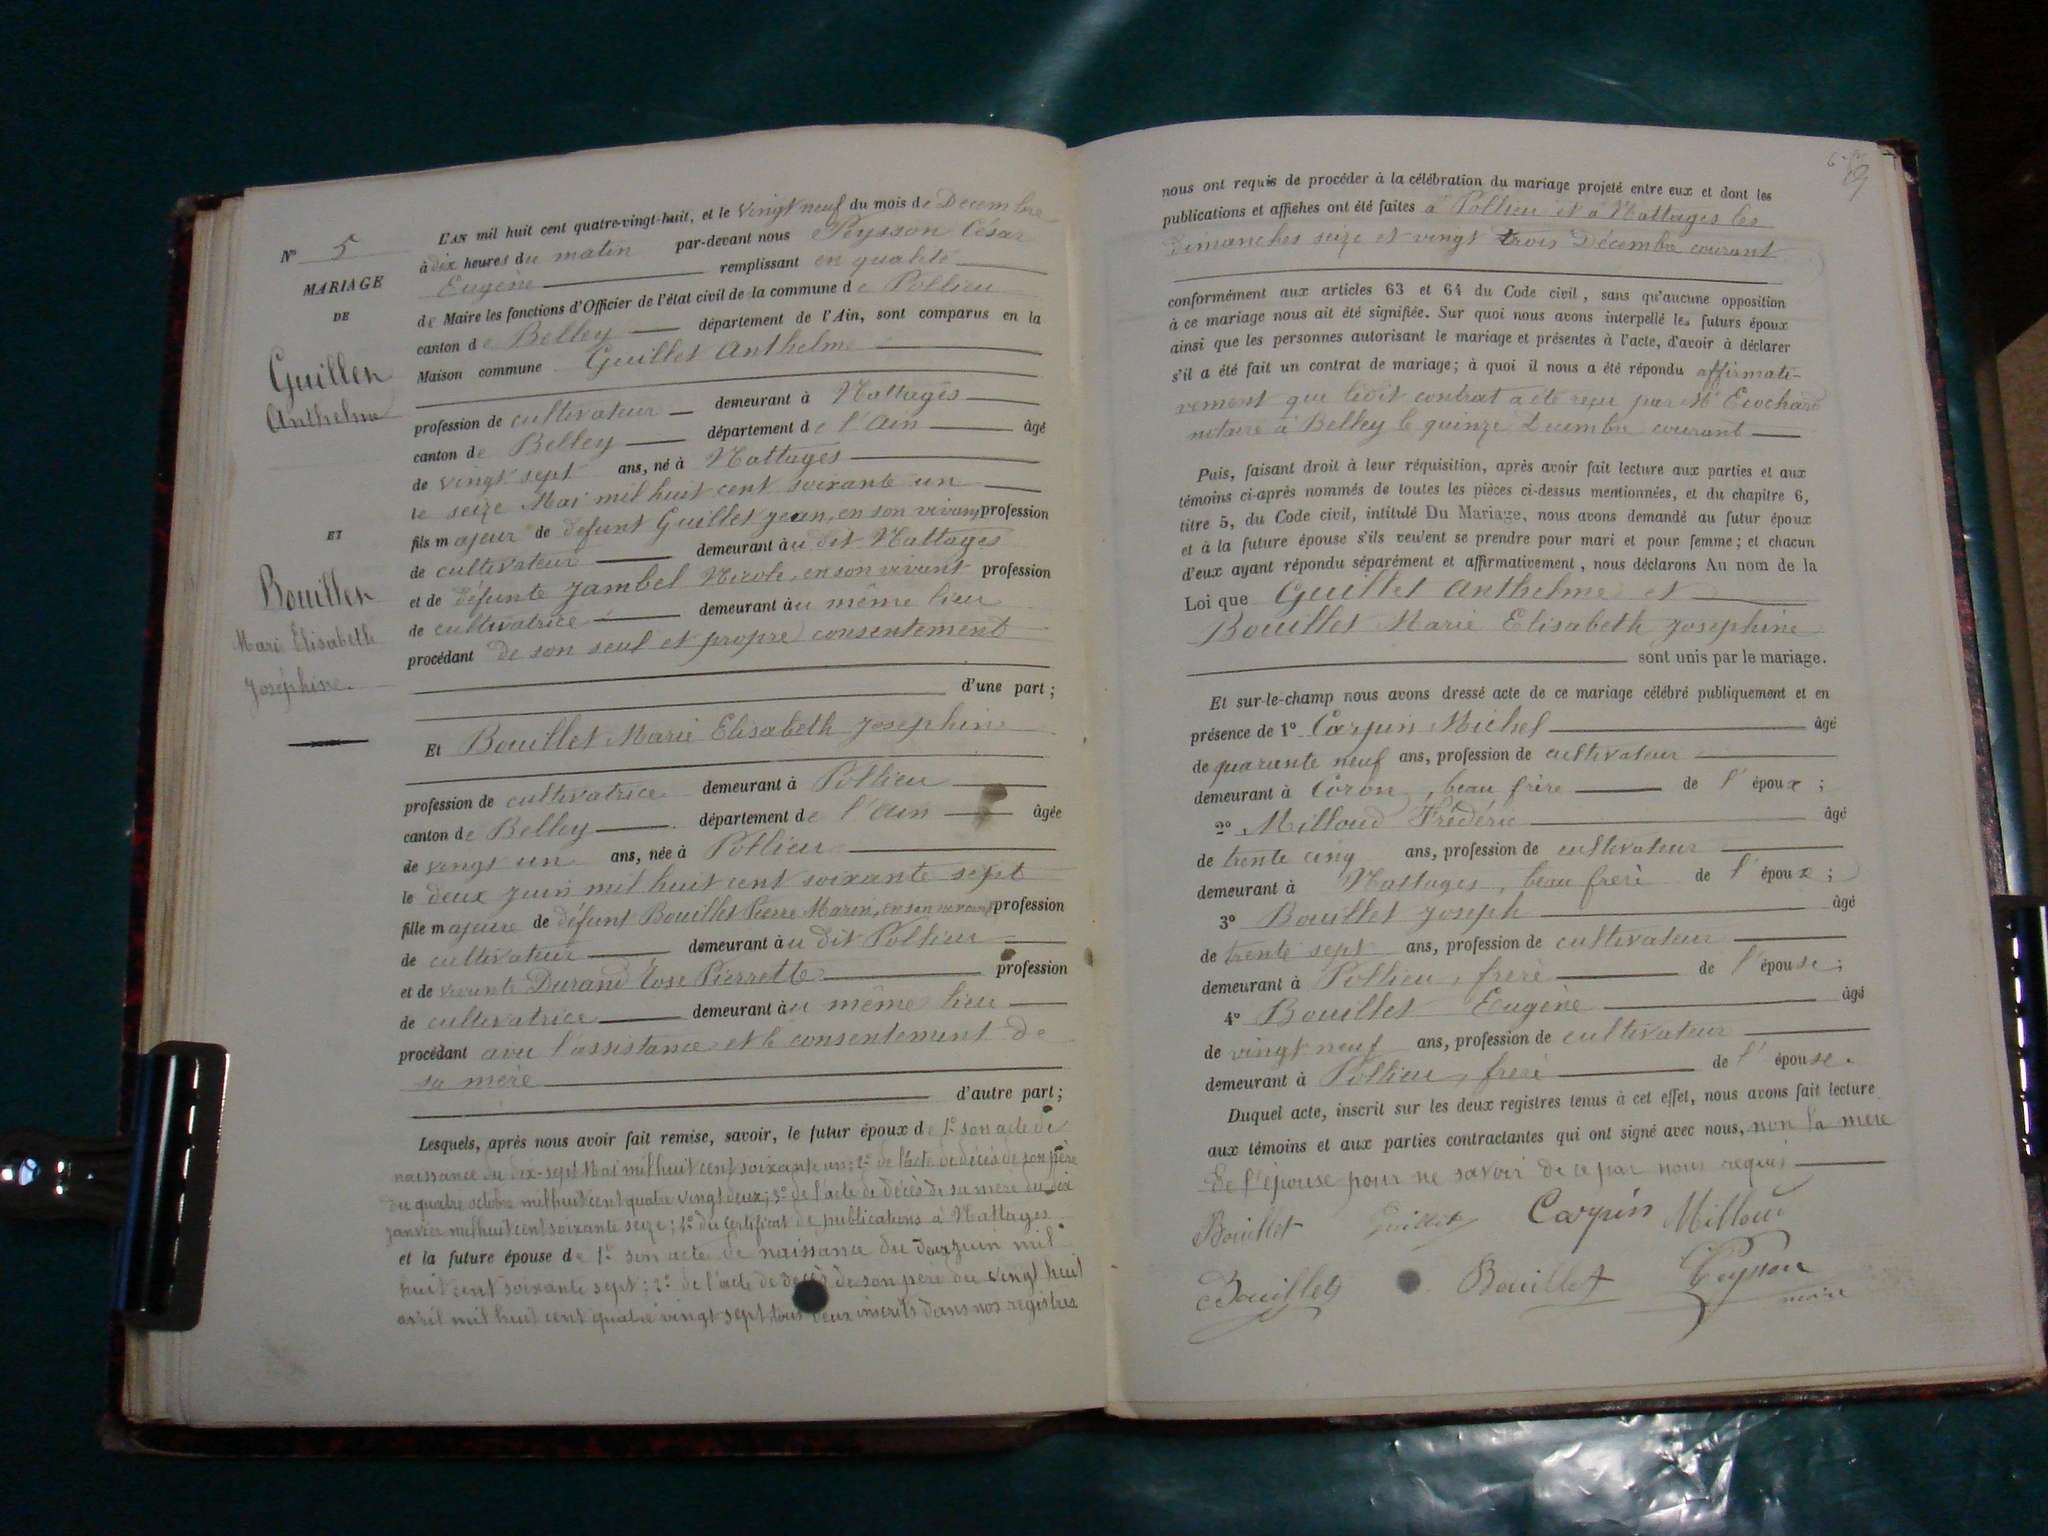 N° 5
MARIAGE
DE
Guillet
Anthelme
ET
Bouillet
Marie Elisabeth
Joséphine.
L'AN mil huit cent quatre-vingt-huit, et le vingt neuf du mois de Décembre
à dix heures du matin par-devant nous Peysson César
Eugène remplissant en qualité
de Maire les fonctions d'Officier de l'état civil de la commune de Pollieu
canton de Belley département de l'Ain, sont comparus en la
Maison commune Guillet Anthelme
profession de cultivateur demeurant à Nattages
canton de Belley département de l'Ain âgé
de vingt sept ans, né à Nattages
le seize Mai mil huit cent soixante un
fils majeur de défunt Guillet Jean, en son vivant, profession
de cultivateur demeurant à u dit Nattages
et de défunte Jambel Nicole, en son vivant profession
de cultivatrice demeurant à u même lieu
procédant de son seul et propre consentement
d'une part ;
Et Bouillet Marie Elisabeth Joséphine
profession de cultivatrice demeurant à Pollieu
canton de Belley département de l'Ain âgée
de vingt un ans, née à Pollieu
le deux Juin mil huit cent soixante sept
fille majeure de défunt Bouillet Pierre Marin, en son vivant, profession
de cultivateur demeurant à u dit Pollieu
et de vivante Durand Rose Pierrette profession
de cultivatrice demeurant à u même lieu
procédant avec l'assistance et le consentement de
sa mère
d'autre part ;
Lesquels, après nous avoir fait remise, savoir, le futur époux de 1° son acte de
naissance du dix-sept Mai mil huit cent soixante un ; 2° de l'acte de décès de son père
du quatre octobre mil huit cent quatre vingt deux ; 3° de l'acte de décès de sa mère du dix
janvier mil huit cent soixante seize ; 4° du certificat de publications à Nattages
et la future épouse de 1° son acte de naissance du deux juin mil
huit cent soixante sept ; 2° de l'acte de décès de son père du vingt huit
avril mil huit cent quatre vingt sept, tous deux inscrits dans nos registres
nous ont requis de procéder à la célébration du mariage projeté entre eux et dont les
publications et affiches ont été faites à Pollieu et à Nattages les
dimanches seize et vingt trois Décembre courant
conformément aux articles 63 et 64 du Code civil, sans qu'aucune opposition
à ce mariage nous ait été signifiée. Sur quoi nous avons interpellé les futurs époux
ainsi que les personnes autorisant le mariage et présentes à l'acte, d'avoir à déclarer
s'il a été fait un contrat de mariage ; à quoi il nous a été répondu affirmati-
vement que ledit contrat a été reçu par Me Ecochard
notaire à Belley le quinze Décembre courant
Puis, faisant droit à leur réquisition, après avoir fait lecture aux parties et aux
témoins ci-après nommés de toutes les pièces ci-dessus mentionnées, et du chapitre 6,
titre 5, du Code civil, intitulé Du Mariage, nous avons demandé au futur époux
et à la future épouse s'ils veulent se prendre pour mari et pour femme ; et chacun
d'eux ayant répondu séparément et affirmativement, nous déclarons Au nom de la
Loi que Guillet Anthelme et
Bouillet Marie Elisabeth Joséphine
sont unis par le mariage.
Et sur-le-champ nous avons dressé acte de ce mariage célébré publiquement et en
présence de 1° Carpin Michel âgé
de quarante neuf ans, profession de cultivateur
demeurant à Coron, beau frère de l'époux ;
2° Milloud Frédéric âgé
de trente cinq ans, profession de cultivateur
demeurant à Nattages, beau frère de l'époux ;
3° Bouillet Joseph âgé
de trente sept ans, profession de cultivateur
demeurant à Pollieu, frère de l'épouse ;
4° Bouillet Eugène âgé
de vingt neuf ans, profession de cultivateur
demeurant à Pollieu, frère de l'épouse.
Duquel acte, inscrit sur les deux registres tenus à cet effet, nous avons fait lecture
aux témoins et aux parties contractantes qui ont signé avec nous, non la mère
de l'épouse pour ne savoir de ce par nous requis
Bouillet Guillet Carpin Milloud
Bouillet Bouillet Peysson
maire